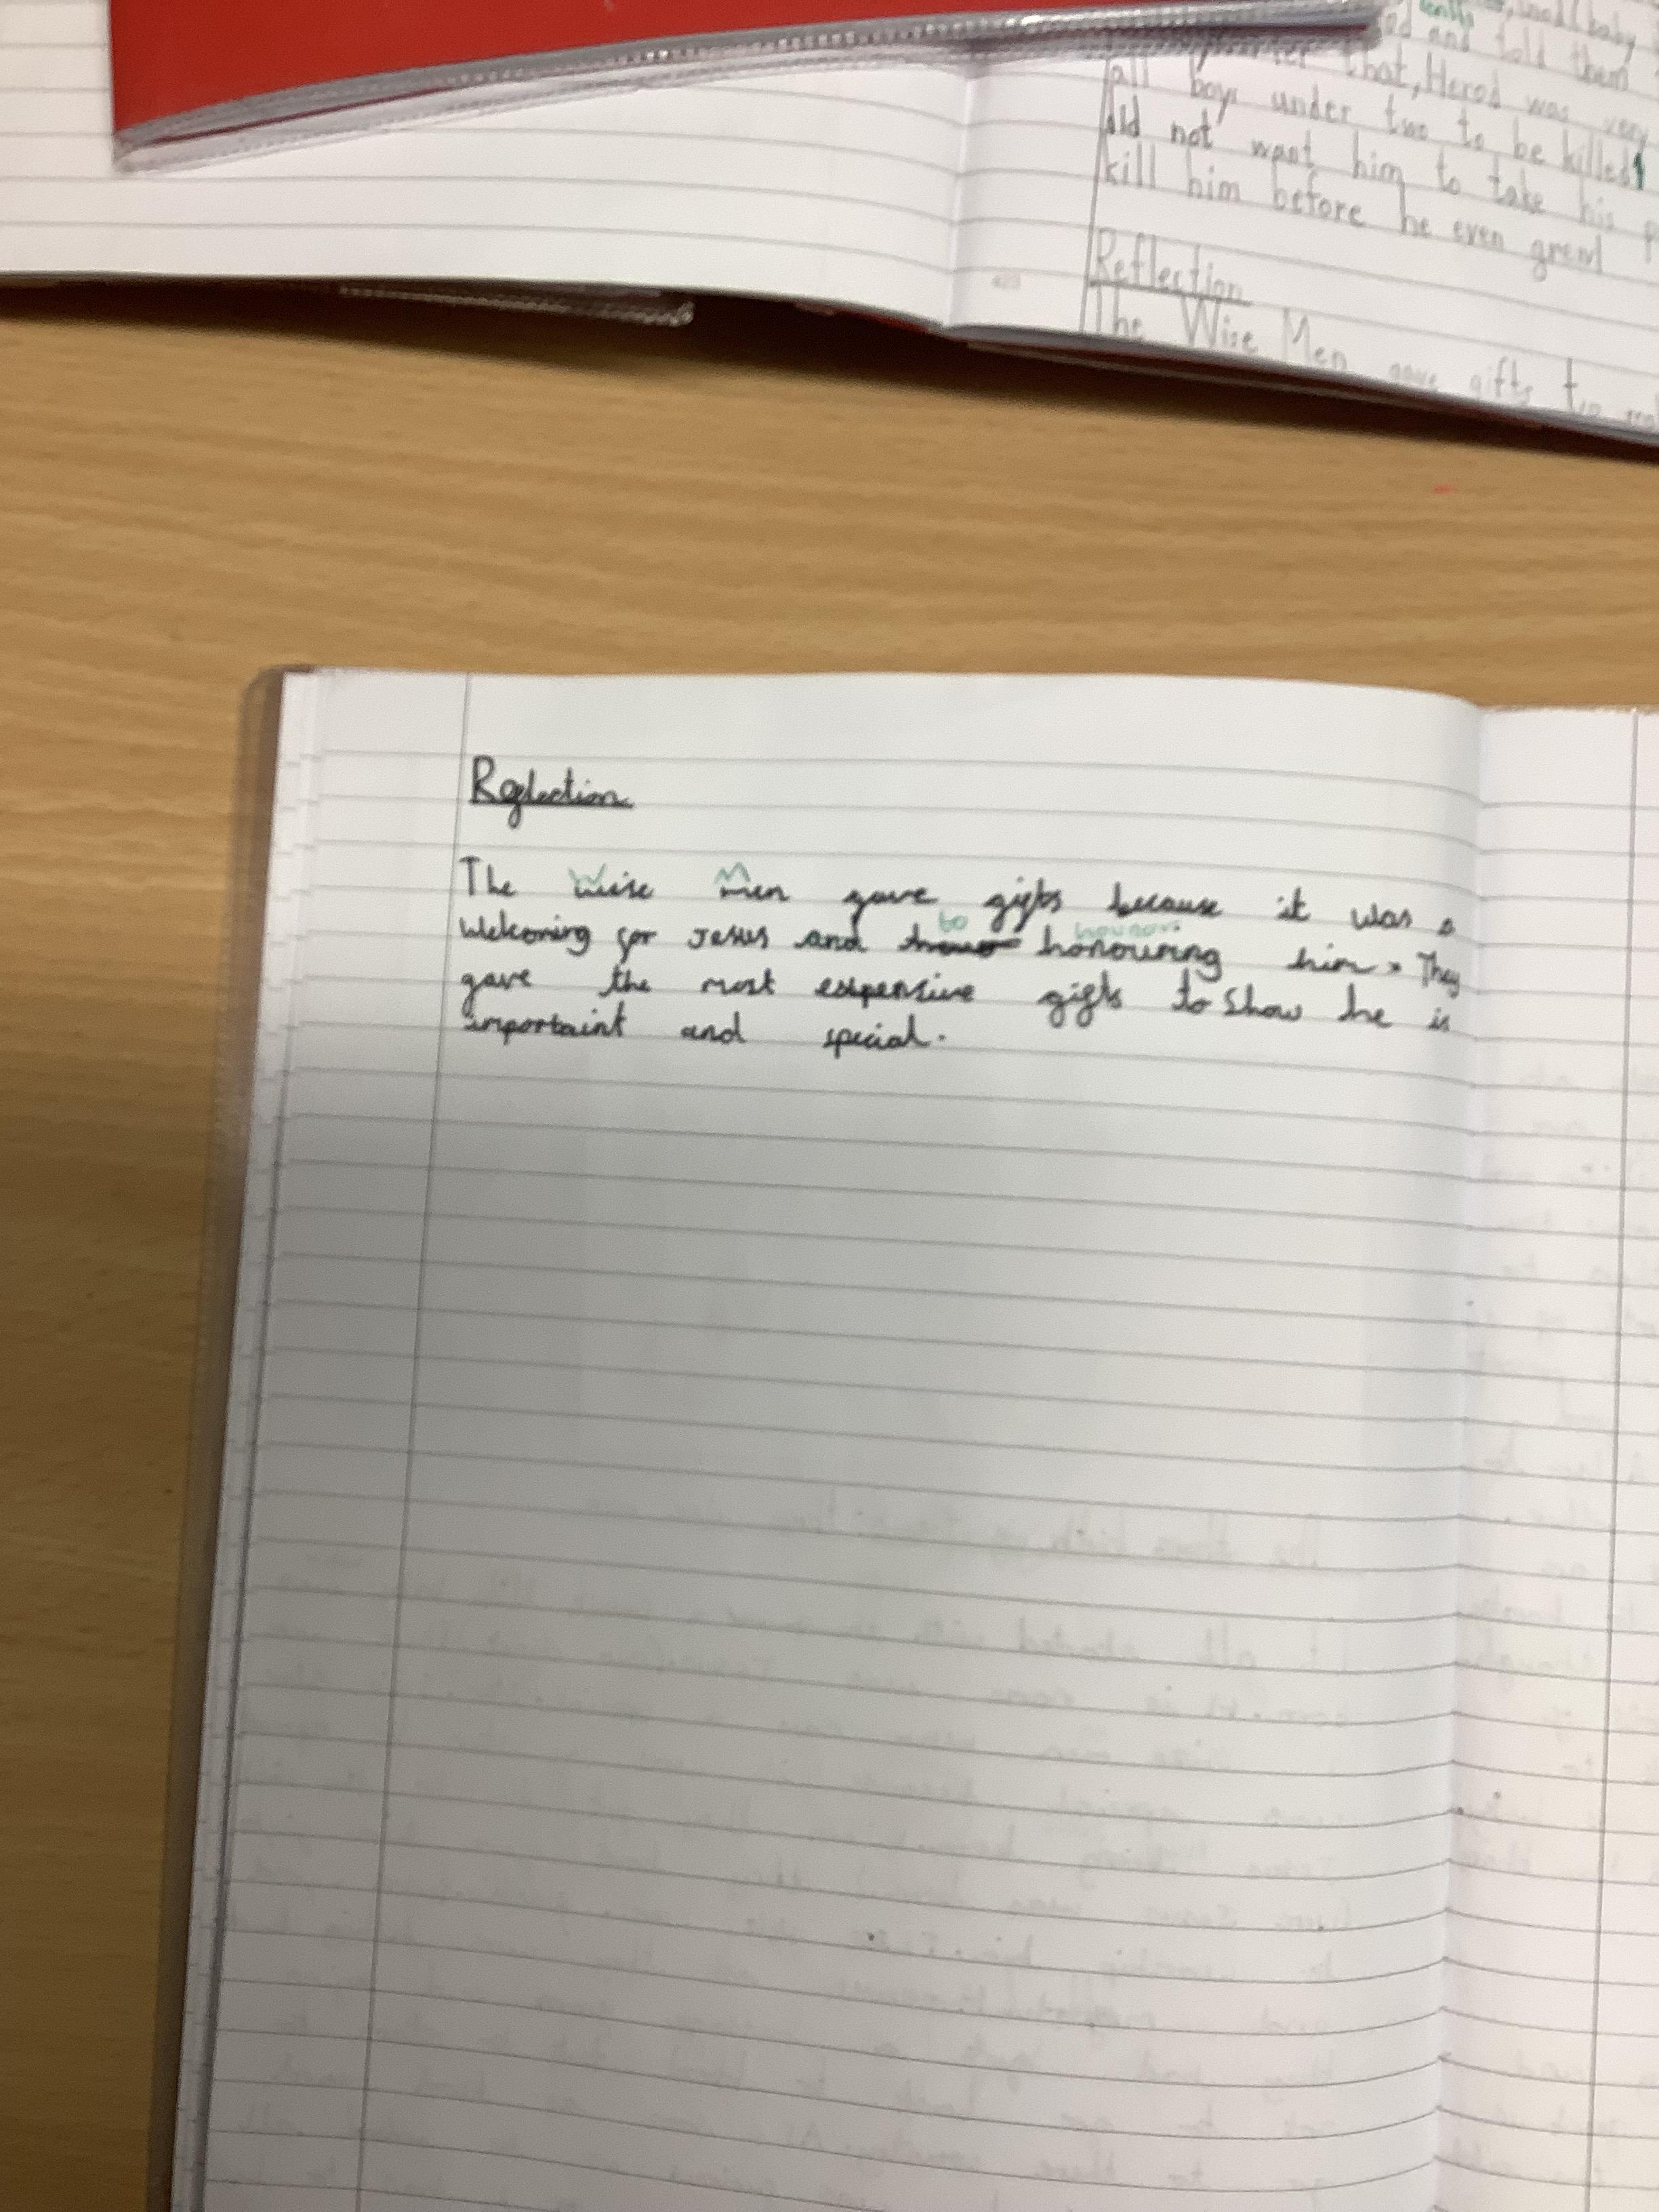 and told them
that, Herod was very
all boys under two to be killed
did not want him to take his
kill him before he even grew
Reflection
The Wise Men gave gifts to
Reflection
The Wise Men gave gifts because it was a
to honour
welcoming for Jesus and honouring him. They
gave the most expensive gifts to show he is
importaint and special.